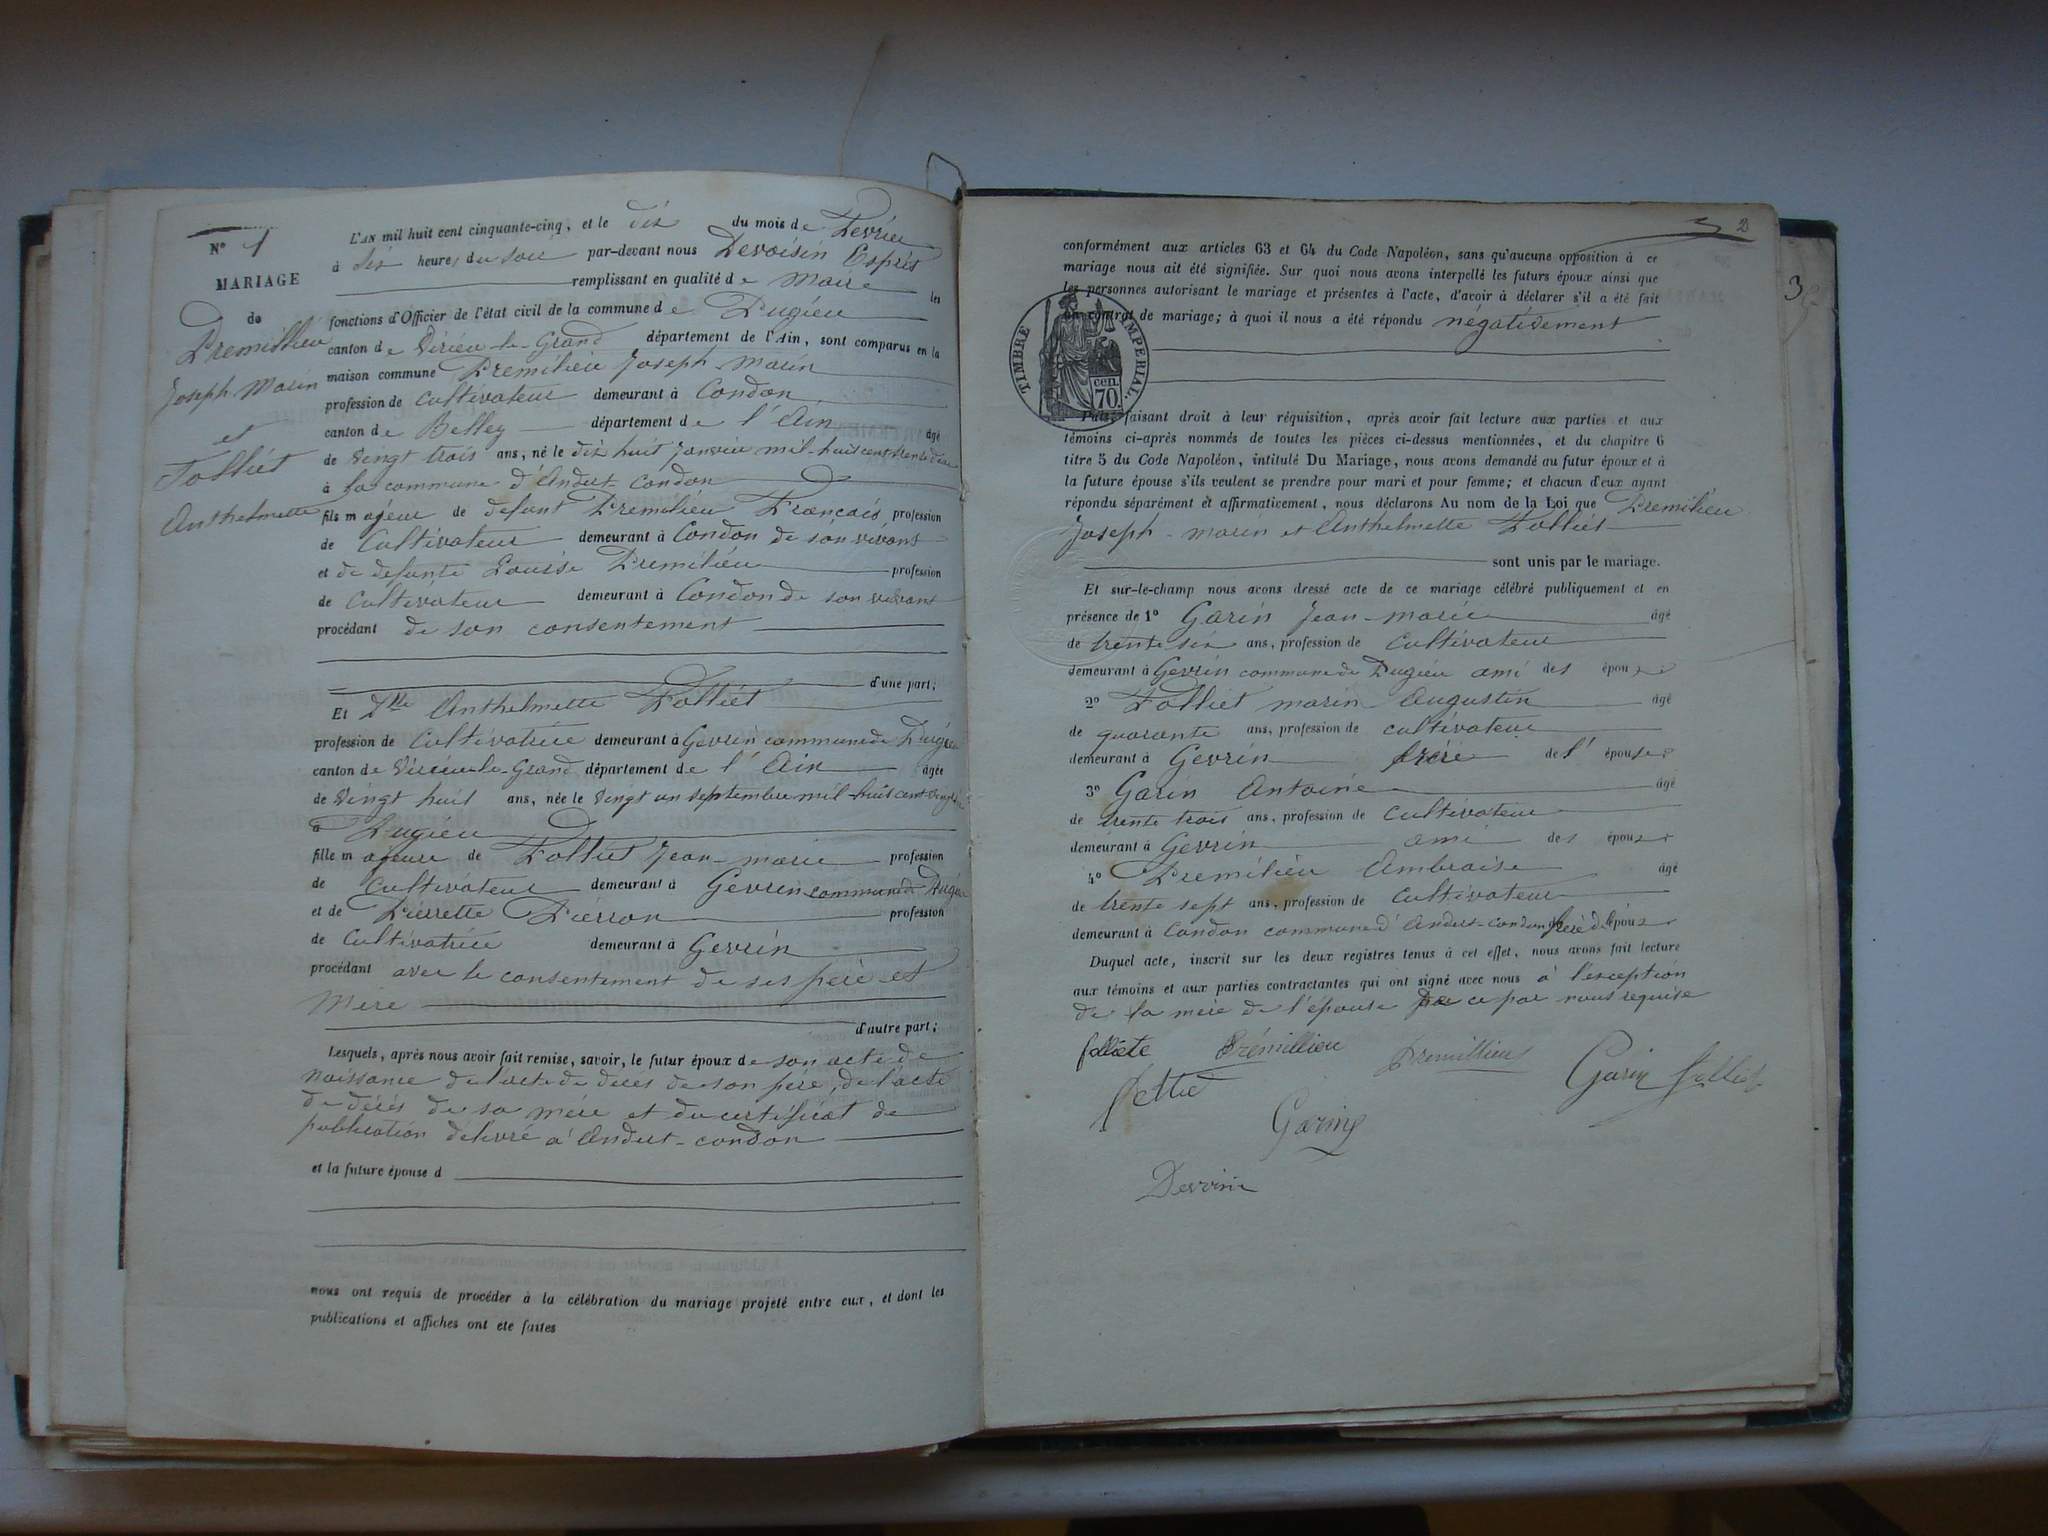 N° 1
MARIAGE
de
Premillieu
Joseph Marin
et
Folliet
Anthelmette
L'AN mil huit cent cinquante-cinq, et le dix du mois de Fevrier
à six heures du soir par-devant nous Devoisin Esprit
remplissant en qualité de Maire les
fonctions d'Officier de l'état civil de la commune de Pugieu
canton de Virieu-le-Grand département de l'Ain, sont comparus en la
maison commune Premilieu Joseph-Marin
profession de cultivateur demeurant à Condon
canton de Belley département de l'Ain âgé
de vingt trois ans, né le dix huit Janvier mil-huit cent trente deux
à la commune d'Andert-Condon
fils majeur de defunt Premilieu François profession
de Cultivateur demeurant à Condon de son vivant
et de defunte Louise Premilieu profession
de Cultivateur demeurant à Condon de son vivant
procédant de son consentement
d'une part;
Et Dlle Anthelmette Folliet
profession de Cultivatrice demeurant à Gevrin commune de Pugieu
canton de Virieu-le-Grand département de l'Ain âgée
de Vingt huit ans, née le vingt un septembre mil-huit cent vingt
à Pugieu
fille majeure de Folliet Jean-marie profession
de Cultivateur demeurant à Gevrin commune de Pugieu
et de Pierrette Pierron profession
de Cultivatrice demeurant à Gevrin
procédant avec le consentement de ses père et
Mère
d'autre part;
Lesquels, après nous avoir fait remise, savoir, le futur époux de son acte de
naissance de l'acte de deces de son père, de l'acte
de décés de sa mère et du certificat de
publication délivré à Andert-condon
et la future épouse d
nous ont requis de procéder à la célébration du mariage projeté entre eux, et dont les
publications et affiches ont été faites
2
3
conformément aux articles 63 et 64 du Code Napoléon, sans qu'aucune opposition à ce
mariage nous ait été signifiée. Sur quoi nous avons interpellé les futurs époux ainsi que
les personnes autorisant le mariage et présentes à l'acte, d'avoir à déclarer s'il a été fait
un contrat de mariage; à quoi il nous a été répondu négativement
TIMBRE IMPERIAL.
cen.
70.
Puis, faisant droit à leur réquisition, après avoir fait lecture aux parties et aux
témoins ci-après nommés de toutes les pièces ci-dessus mentionnées, et du chapitre 6
titre 5 du Code Napoléon, intitulé Du Mariage, nous avons demandé au futur époux et à
la future épouse s'ils veulent se prendre pour mari et pour femme; et chacun d'eux ayant
répondu séparément et affirmativement, nous déclarons Au nom de la Loi que Premilieu
Joseph-marin et Anthelmette Folliet
sont unis par le mariage.
Et sur-le-champ nous avons dressé acte de ce mariage célébré publiquement et en
présence de 1° Garin Jean-marie âgé
de trente six ans, profession de cultivateur
demeurant à Gevrin commune de Pugieu ami des époux
2° Folliet marin-Augustin âgé
de quarante ans, profession de cultivateur
demeurant à Gevrin frère de l'épouse
3° Garin Antoine âgé
de trente trois ans, profession de cultivateur
demeurant à Gevrin ami des époux
4° Premilieu Ambroise âgé
de trente sept ans, profession de cultivateur
demeurant à Condon commune d'Andert-Condon frère de l'époux
Duquel acte, inscrit sur les deux registres tenus à cet effet, nous avons fait lecture
aux témoins et aux parties contractantes qui ont signé avec nous à l'exception
de la mère de l'épouse de ce par nous requise
folliete Prémillieu Premillieux Garin folliet
Garin
Devoisin